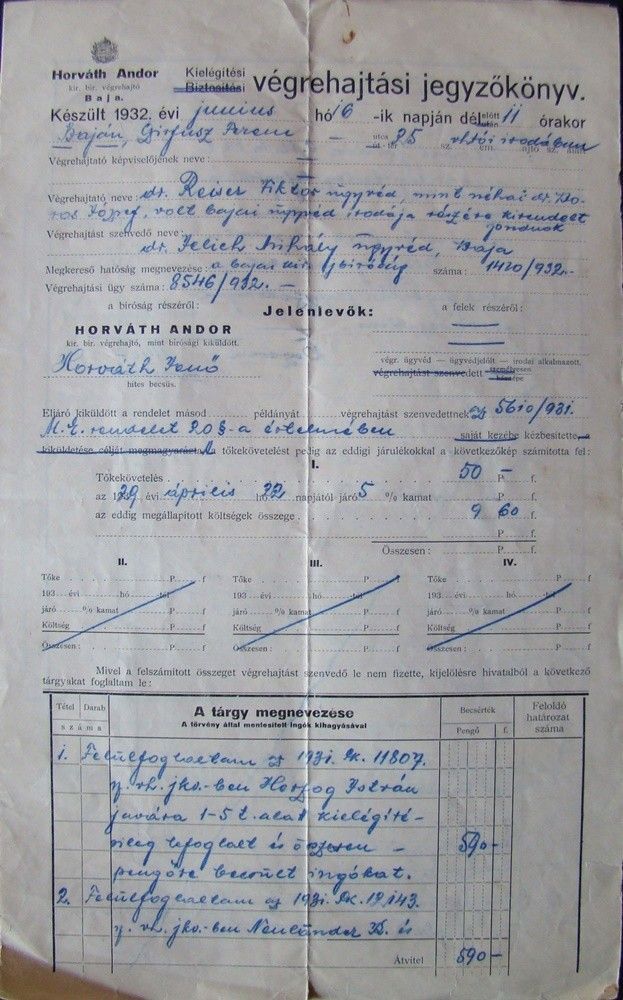 Horváth Andor
kir. bir. végrehajtó
Baja.
Kielégítési
Biztosítási
végrehajtási jegyzőkönyv.
Készült 1932. évi junius hó 16 -ik napján délelőtt 11 órakor
Baján, Ferenc utca 25 sz. vhtói irodában
Végrehajtató képviselőjének neve :
Végrehajtató neve : dr. Reiser Viktor ügyvéd, mint néhai dr. Bo-
ros József, volt bajai ügyvéd irodája részére kirendelt
gondnok
Végrehajtást szenvedő neve :
dr. Jelich Mihály ügyvéd, Baja
Megkereső hatóság megnevezése : a bajai kir. jbiróság száma : 1420/932.-
Végrehajtási ügy száma : 8546/932. —
a bíróság részéről :
Jelenlevők:
a felek részéről :
HORVÁTH ANDOR
kir. bir. végrehajtó, mint bírósági kiküldött.
Horváth Jenő
hites becsüs.
végr. ügyvéd — ügyvédjelölt — irodai alkalmazott,
végrehajtást szenvedett személyesen
Eljáró kiküldött a rendelet másod példányát végrehajtást szenvedettnek az 5610/931.
M.E. rendelet 20§-a értelmében saját kezébe kézbesítette, a
kiküldetése célját megmagyarázta A tőkekövetelést pedig az eddigi járulékokkal a következőkép számította fel :
I.
Tőkekövetelés 50 — P f.
az 1929 évi április hó 22 napjától járó 5 % kamat P f.
az eddig megállapított költségek összege 9 60 P f.
P f.
Összesen : P f.
II. III. IV.
Tőke P f Tőke P f Tőke P f
193 évi hó tól 193 évi hó tól 193 évi hó tól
járó % kamat P f járó % kamat P f járó % kamat P f
Költség P f Költség P f Költség P f
Összesen : P f Összesen : P f Összesen : P f
Mivel a felszámított összeget végrehajtást szenvedő le nem fizette, kijelölésre hivatalból a következő
tárgyakat foglaltam le :
Tétel Darab
száma
A tárgy megnevezése
A törvény által mentesített ingók kihagyásával
Becsérték
Pengő f.
Feloldó
határozat
száma
1. Felülfoglaltam az 1931. Pk. 11807.
sz. vh. jkv.-ben Herzog István
javára 1-5 t. alatt kielégíté-
sileg lefoglalt és összesen — 590-
pengőre becsült ingókat.
2. Felülfoglaltam az 1931. Pk. 12143.
sz. vh. jkv.-ben Neuländer B. és
Átvitel 590-